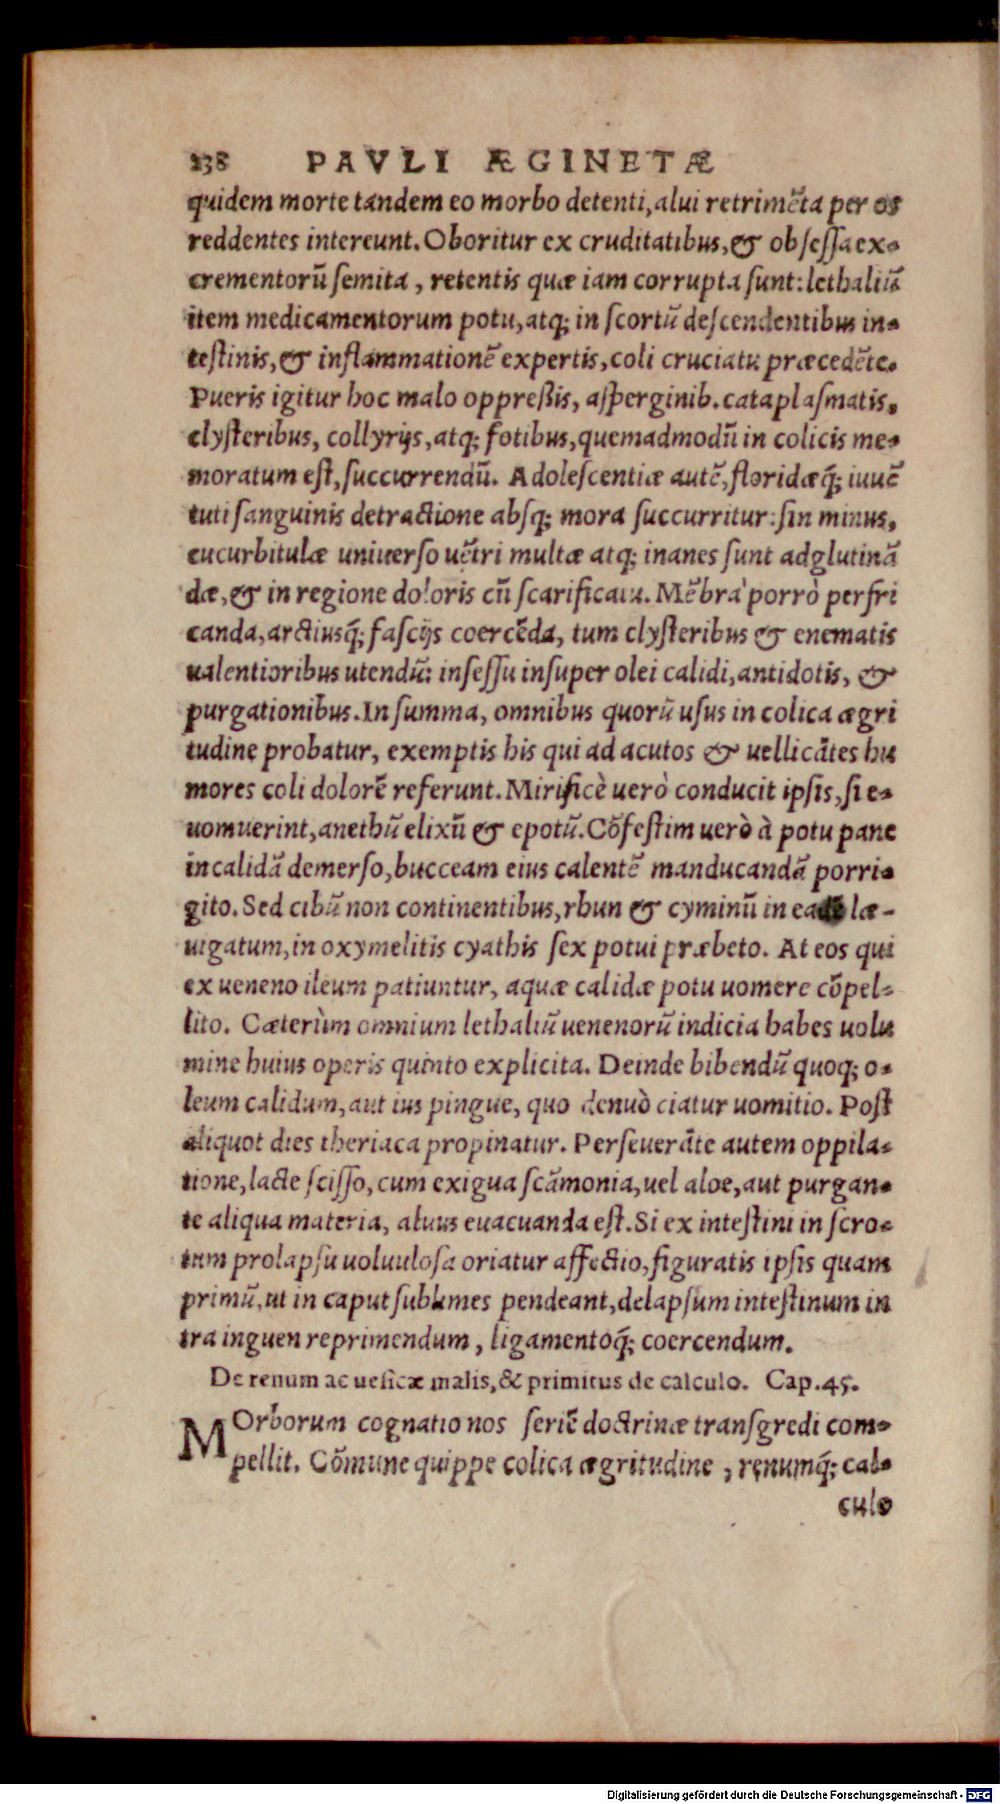 238 PAVLI ÆGINETÆ
quidem morte tandem eo morbo detenti, alui retrimẽta per os
reddentes intereunt. Oboritur ex cruditatibus, & obſeſſa ex-
crementorũ ſemita, retentis quæ iam corrupta ſunt: lethaliũ
item medicamentorum potu, atq; in ſcortũ deſcendentibus in-
teſtinis, & inflammationẽ expertis, coli cruciatu præcedẽte.
Pueris igitur hoc malo oppreſſis, aſperginib. cataplaſmatis,
clyſteribus, collyrijs, atq; fotibus, quemadmodũ in colicis me-
moratum eſt, ſuccurrendũ. Adoleſcentiæ autẽ, floridæq́; iuuẽ
tuti ſanguinis detractione abſq; mora ſuccurritur: ſin minus,
cucurbitulæ uniuerſo uẽtri multæ atq; inanes ſunt adglutinã
dæ, & in regione doloris cũ ſcarificatu. Mẽbra porrò perfri
canda, arctiusq́; faſcijs coercẽda, tum clyſteribus & enematis
ualentioribus utendũ: inſeſſu inſuper olei calidi, antidotis, &
purgationibus. In ſumma, omnibus quorũ uſus in colica ægri
tudine probatur, exemptis his qui ad acutos & uellicãtes hu
mores coli dolorẽ referunt. Mirificè uerò conducit ipſis, ſi e-
uomuerint, anethũ elixũ & epotũ. Cõfeſtim uerò à potu pane
in calidã demerſo, bucceam eius calentẽ manducandã porri-
gito. Sed cibũ non continentibus, rhun & cyminũ in eadẽ læ-
uigatum, in oxymelitis cyathis ſex potui præbeto. At eos qui
ex ueneno ileum patiuntur, aquæ calidæ potu uomere cõpel-
lito. Cæterùm omnium lethaliũ uenenorũ indicia habes uolu
mine huius operis quinto explicita. Deinde bibendũ quoq; o-
leum calidum, aut ius pingue, quo denuò ciatur uomitio. Poſt
aliquot dies theriaca propinatur. Perſeuerãte autem oppila-
tione, lacte ſciſſo, cum exigua ſcãmonia, uel aloe, aut purgan-
te aliqua materia, aluus euacuanda eſt. Si ex inteſtini in ſcro-
tum prolapſu uoluuloſa oriatur affectio, figuratis ipſis quam
primũ, ut in caput ſublimes pendeant, delapſum inteſtinum in
tra inguen reprimendum, ligamentoq́; coercendum.
De renum ac ueſicæ malis, & primitus de calculo. Cap. 45.
MOrborum cognatio nos ſeriẽ doctrinæ tranſgredi com-
pellit. Cõmune quippe colica ægritudine, renumq́; cal-
culo
Digitalisierung gefördert durch die Deutsche Forschungsgemeinschaft - DFG